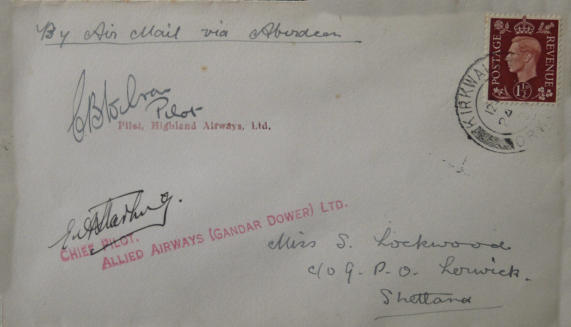 By Air Mail via Aberdeen
POSTAGE REVENUE
1½
KIRKWALL
Pilot
Pilot, Highland Airways, Ltd.
CHIEF PILOT,
ALLIED AIRWAYS (GANDAR DOWER) LTD.
Miss S. Lockwood
c/o G. P. O. Lerwick.
Shetland